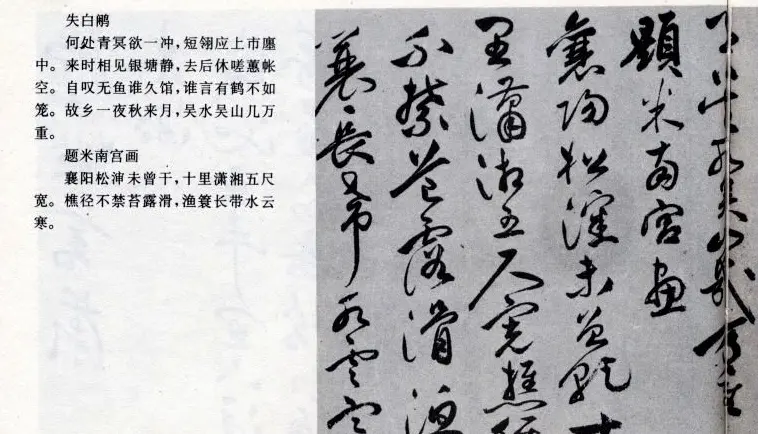 失白鹇
何处青冥欲一冲，短翎应上市廛
中。来时相见银塘静，去后休嗟蕙帐
空。自叹无鱼谁久馆，谁言有鹤不如
笼。故乡一夜秋来月，吴水吴山几万
重。
题米南宫画
襄阳松滓未曾干，十里潇湘五尺
宽。樵径不禁苔露滑，渔簑长带水云
寒。
吴山几万重
题米南宫画
襄阳松滓未曾干十
里潇湘五尺宽樵径
不禁苔露滑渔
蓑长带水云寒